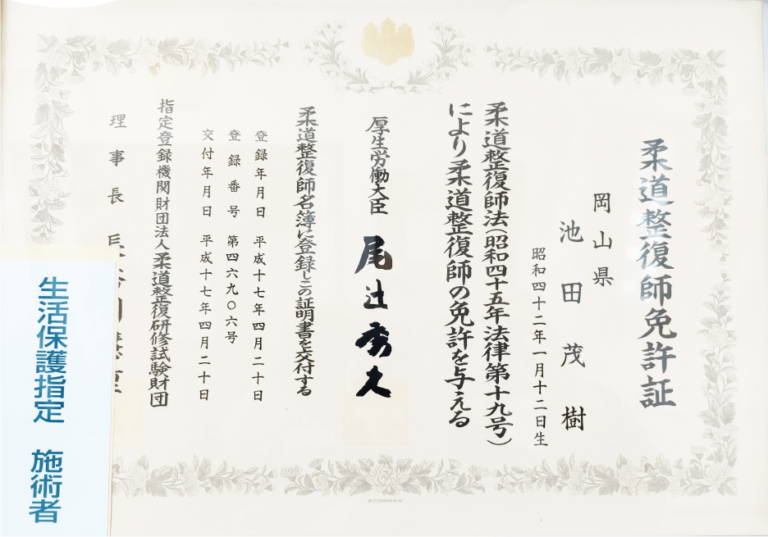 柔道整復師免許証
岡山県
池田茂樹
昭和四十二年一月十二日生
柔道整復師法(昭和四十五年法律第十九号)
により柔道整復師の免許を与える
厚生労働大臣 尾辻秀久
柔道整復師名簿に登録しこの証明書を交付する
登録年月日 平成十七年四月二十日
登録番号 第四六九〇六号
交付年月日 平成十七年四月二十日
指定登録機関財団法人柔道整復研修試験財団
理事長
生活保護指定 施術者